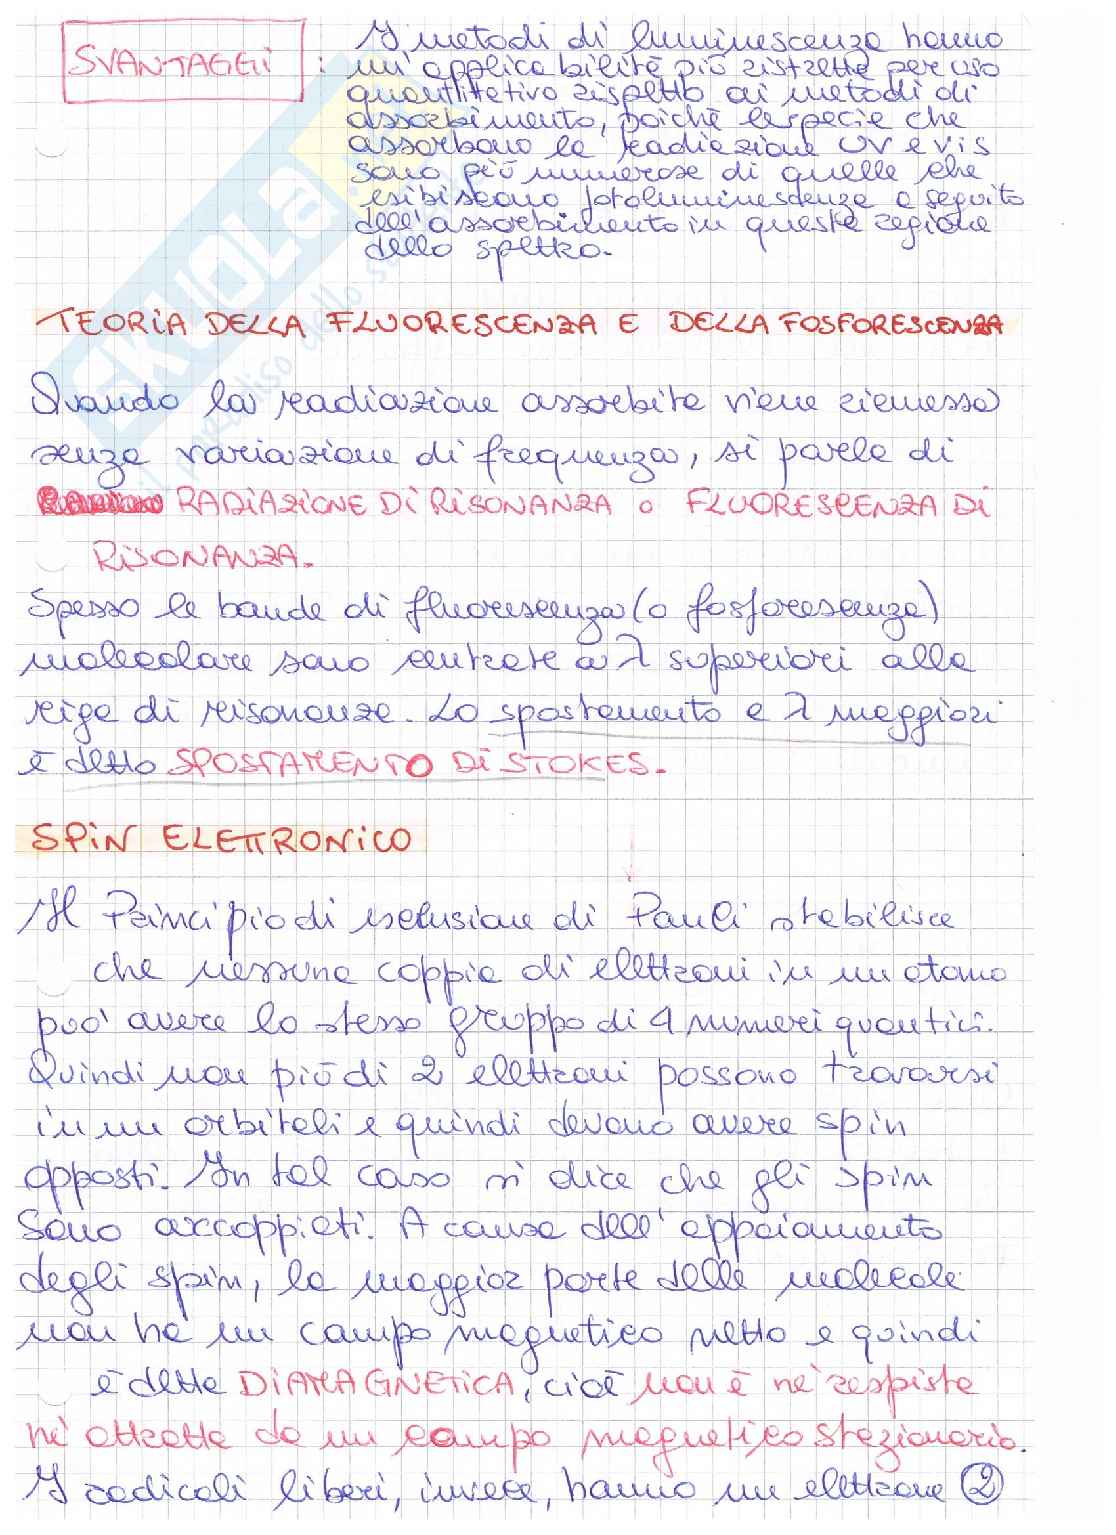 SVANTAGGI : I metodi di luminescenza hanno
un'applicabilità più ristretta per uso
quantitativo rispetto ai metodi di
assorbimento, poiché le specie che
assorbono la radiazione UV e VIS
sono più numerose di quelle che
esibiscono fotoluminescenza a seguito
dell'assorbimento in questa regione
dello spettro.
TEORIA DELLA FLUORESCENZA E DELLA FOSFORESCENZA
Quando la radiazione assorbita viene riemessa
senza variazione di frequenza, si parla di
RADIAZIONE DI RISONANZA o FLUORESCENZA DI
RISONANZA.
Spesso le bande di fluorescenza (o fosforescenza)
molecolare sono centrate a λ superiori alla
riga di risonanza. Lo spostamento a λ maggiori
è detto SPOSTAMENTO DI STOKES.
SPIN ELETTRONICO
Il Principio di esclusione di Pauli stabilisce
che nessuna coppia di elettroni in un atomo
può avere lo stesso gruppo di 4 numeri quantici.
Quindi non più di 2 elettroni possono trovarsi
in un orbitali e quindi devono avere spin
opposti. In tal caso si dice che gli spin
sono accoppiati. A causa dell'appaiamento
degli spin, la maggior parte delle molecole
non ha un campo magnetico netto e quindi
è detta DIAMAGNETICA, cioè non è né respinta
né attratta da un campo magnetico stazionario.
I radicali liberi, invece, hanno un elettrone 2
SKUOLA